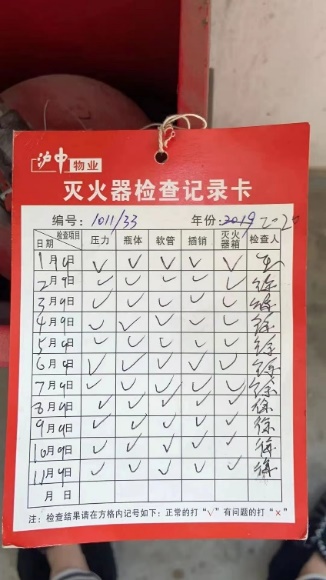 沪中物业
灭火器检查记录卡
编号：1011/33 年份：2019 2020
检查项目 日期 压力 瓶体 软管 插销 灭火器箱 检查人
1月4日 √ √ √ √ √
2月9日 √ √ √ √ √ 徐
3月9日 √ √ √ √ √ 徐
4月9日 √ √ √ √ √ 徐
5月4日 √ √ √ √ √ 徐
6月4日 √ √ √ √ √ 徐
7月4日 √ √ √ √ √ 徐
8月9日 √ √ √ √ √ 徐
9月9日 √ √ √ √ √ 徐
10月9日 √ √ √ √ √ 徐
11月4日 √ √ √ √ √ 徐
月 日
注：检查结果请在方格内记号如下：正常的打“√”有问题的打“×”